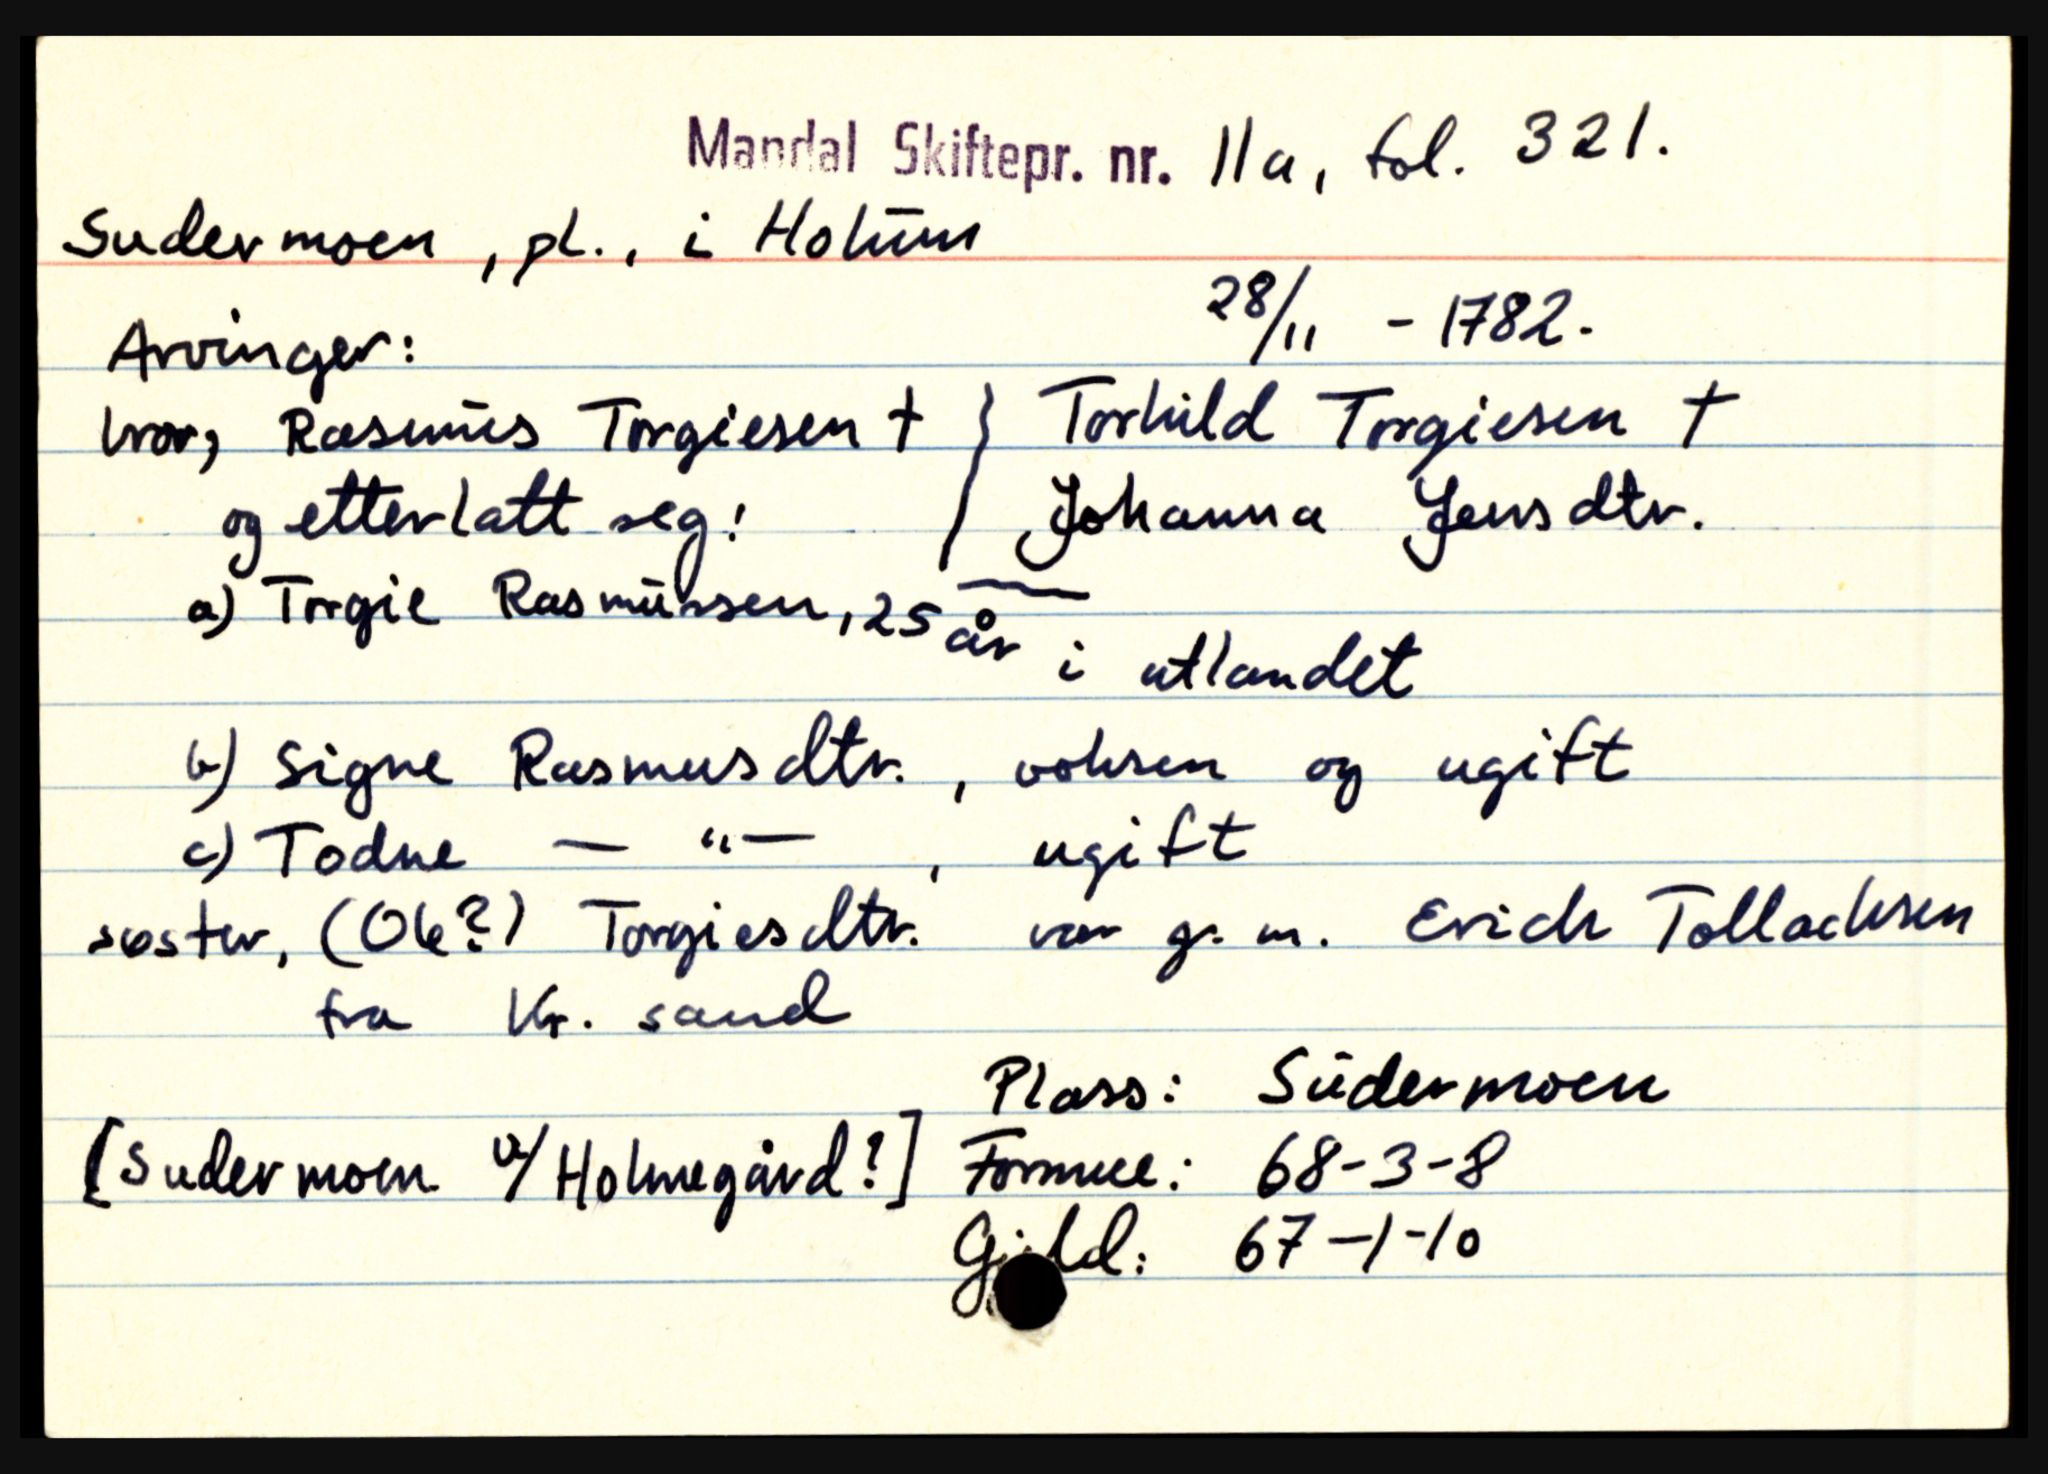 Mandal Skiftepr. nr. 11a, fol. 321.
Sudermoen, pl., i Holūm
28/11 - 1782.
Arvinger:
bror, Rasmūs Torgiesen † } Torkild Torgiesen †
og etterlatt seg: Johanna Jensdtr.
a) Torgie Rasmūssen, 25 år i utlandet
b) Signe Rasmusdtr., voksen og ugift
c) Todne — " —, ugift
søster, (Ole?) Torgiesdtr. var g. m. Erich Tollachsen
fra Kr. sand
Plass: Sūdermoen
[Sudermoen u/Holmegård?] Formue: 68-3-8
Gjeld: 67-1-10